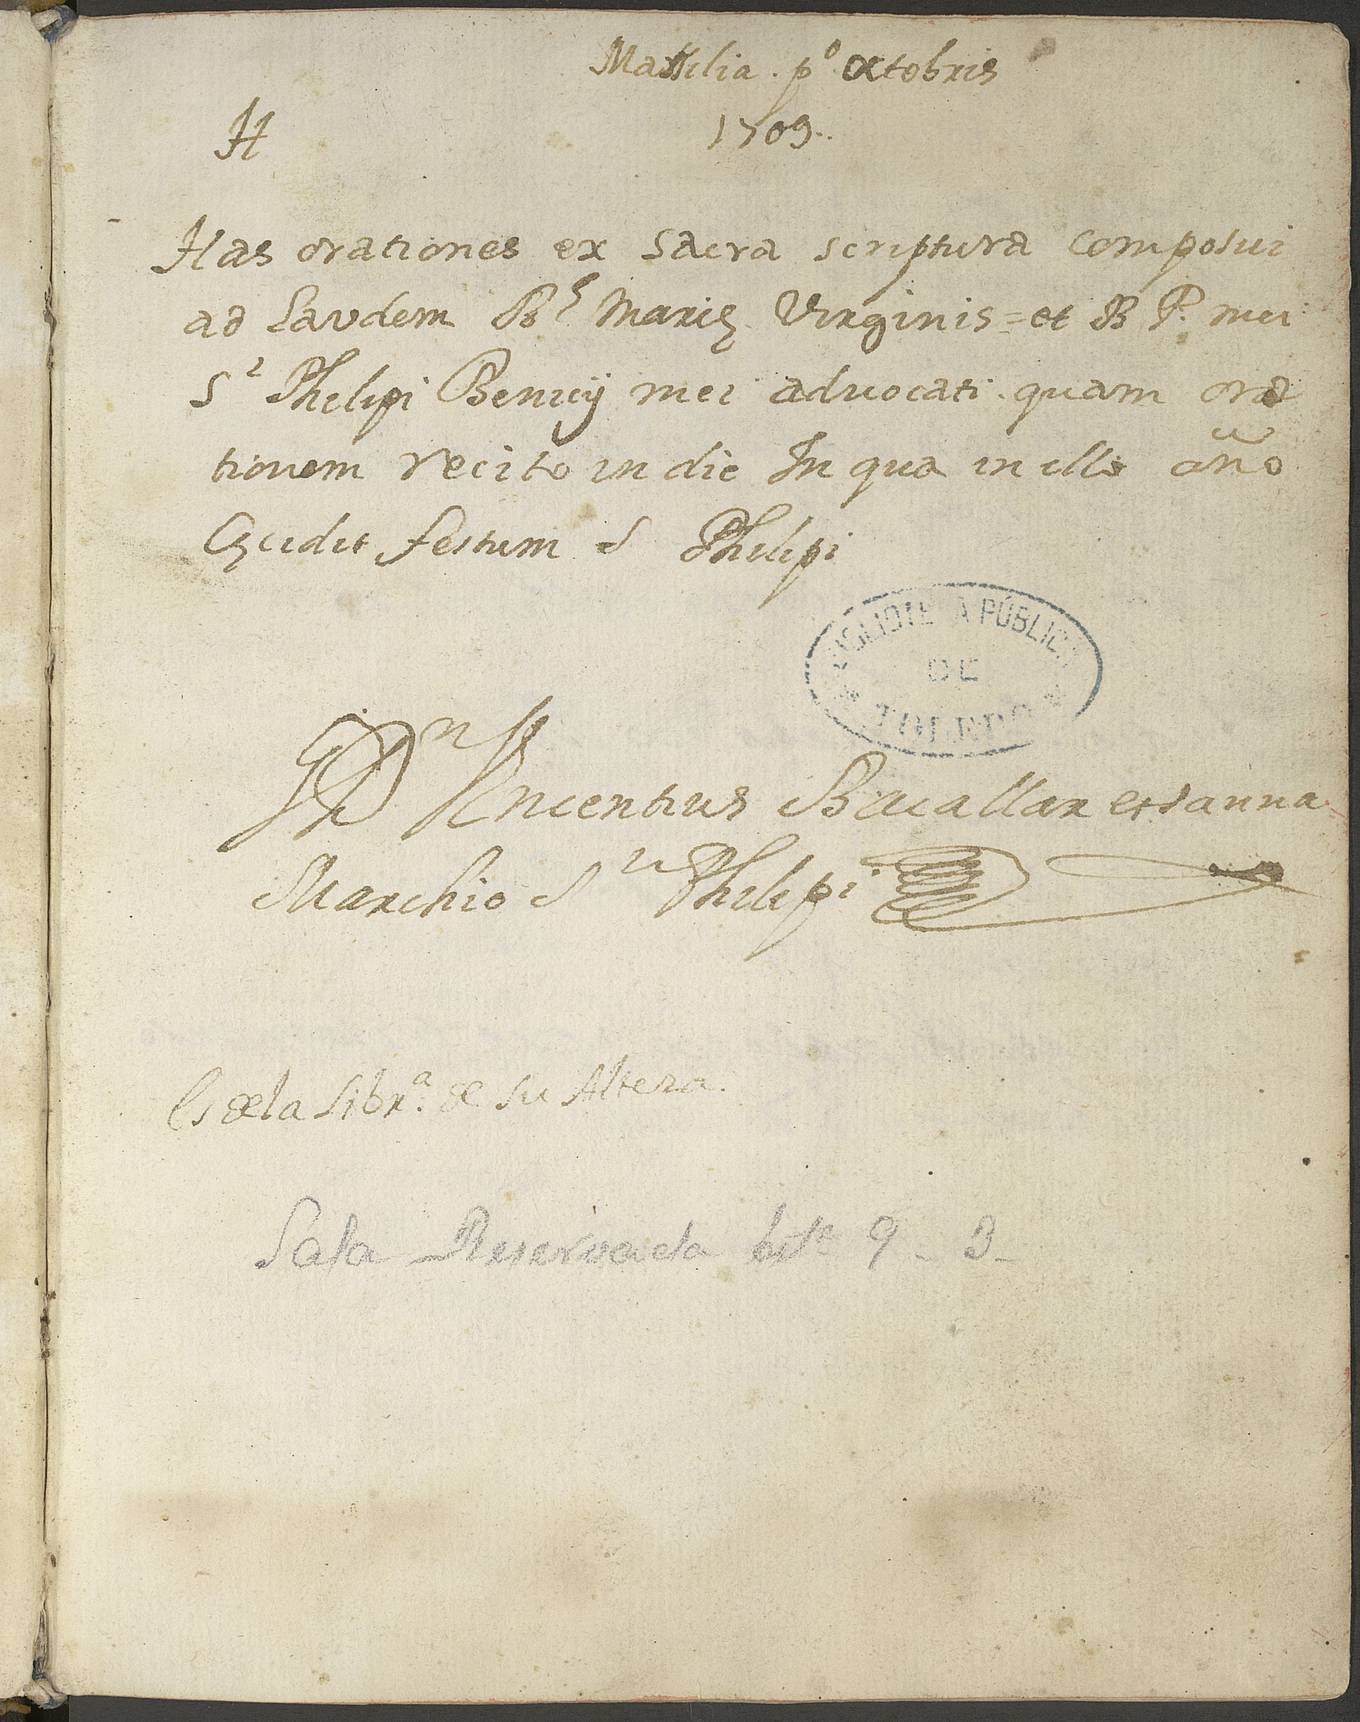 Massilia . pº octobris
H
1709..
Has orationes ex Sacra scriptura composui
ad Laudem Bę Marię Virginis = et B P. mei
Sⁱ Philipi Benicij mei advocati . quam ora
tionem recito in die In qua in illo año
Cęcidit festum S Philipi
BIBLIOTECA PÚBLICA
DE
TOLEDO
Dⁿ Vincentius Bacallar et Sanna
Marchio Sⁿ Philipi
Es de la Librª. de su Alteza.
Sala Reservada bte 9 - 3 -